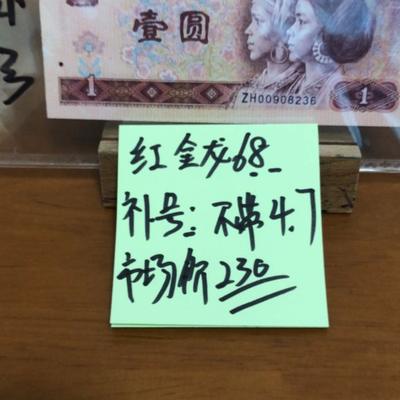 壹圆
1
ZH00908236
1
红金龙68
补号:不带4.7
市场价230